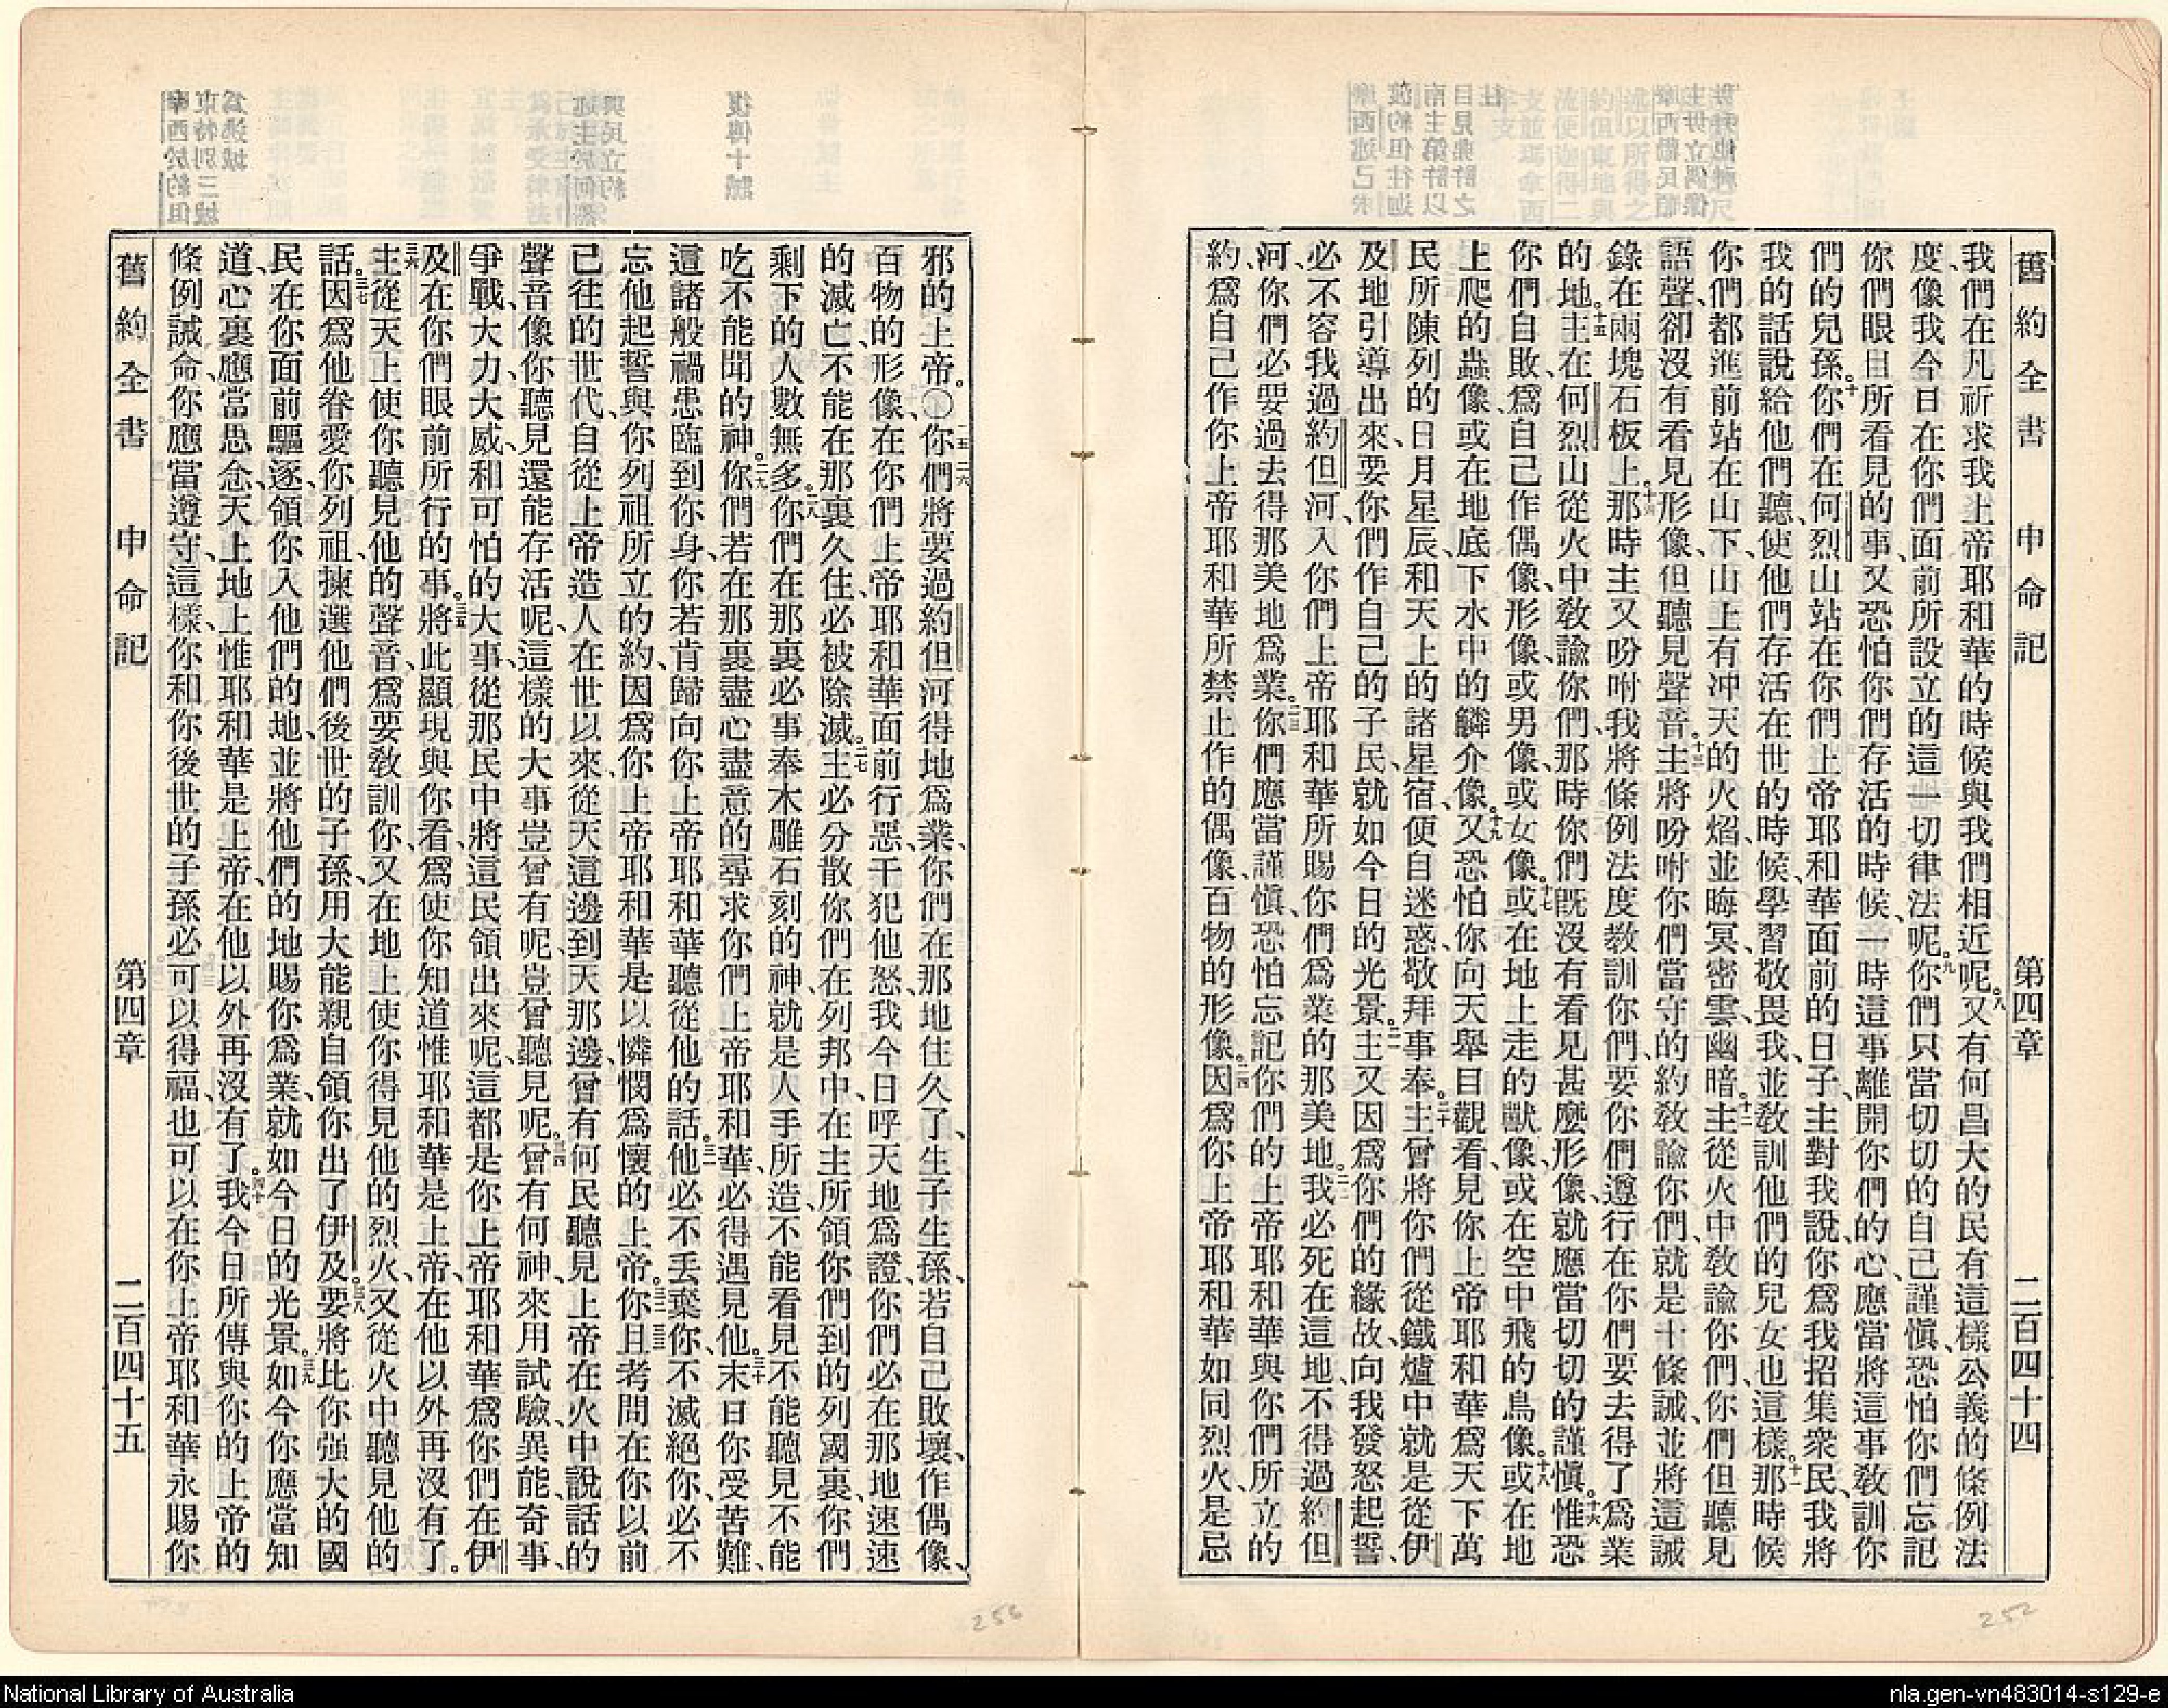 舊約全書 申命記 第四章 二百四十四
我們在凡祈求我上帝耶和華的時候與我們相近呢。八又有何昌大的民有這樣公義的條例法
度、像我今日在你們面前所設立的這一切律法呢。九你們只當切切的自己謹愼、恐怕你們忘記
你們眼目所看見的事、又恐怕你們存活的時候、一時這事離開你們的心、應當將這事敎訓你
們的兒孫。十你們在何烈山站在你們上帝耶和華面前的日子、主對我說、你爲我招集衆民、我將
我的話說給他們聽、使他們存活在世的時候、學習敬畏我、並敎訓他們的兒女也這樣。十一那時候
你們都進前站在山下、山上有冲天的火焰、並晦冥、密雲、幽暗。十二主從火中敎諭你們、你們但聽見
語聲、卻沒有看見形像、但聽見聲音。十三主將吩咐你們當守的約敎諭你們、就是十條誡、並將這誡
錄在兩塊石板上。十四那時主又吩咐我將條例法度敎訓你們、要你們遵行在你們要去得了爲業
的地。十五主在何烈山從火中敎諭你們、那時你們旣沒有看見甚麼形像、就應當切切的謹愼。十六惟恐
你們自敗、爲自己作偶像、形像、或男像、或女像、十七或在地上走的獸像、或在空中飛的鳥像。十八或在地
上爬的蟲像、或在地底下水中的鱗介像。十九又恐怕你向天舉目觀看、見你上帝耶和華爲天下萬
民所陳列的日月星辰、和天上的諸星宿、便自迷惑、敬拜事奉。二十主曾將你們從鐵爐中就是從伊
及地引導出來、要你們作自己的子民、就如今日的光景。二一主又因爲你們的緣故、向我發怒起誓、
必不容我過約但河、入你們上帝耶和華所賜你們爲業的那美地。二二我必死在這地、不得過約但
河、你們必要過去得那美地爲業。二三你們應當謹愼、恐怕忘記你們的上帝耶和華與你們所立的
約、爲自己作你上帝耶和華所禁止作的偶像、百物的形像。二四因爲你上帝耶和華如同烈火、是忌
邪的上帝。〇二五二六你們將要過約但河得地爲業、你們在那地住久了、生子生孫、若自己敗壞、作偶像、
百物的形像、在你們上帝耶和華面前行惡、干犯他怒、我今日呼天地爲證、你們必在那地速速
的滅亡、不能在那裏久住、必被除滅。二七主必分散你們在列邦中、在主所領你們到的列國裏、你們
剩下的人數無多。二八你們在那裏必事奉木雕石刻的神、就是人手所造、不能看見、不能聽見、不能
吃、不能聞的神。二九你們若在那裏盡心盡意的尋求你們上帝耶和華、必得遇見他。三十末日你受苦難、
這諸般禍患臨到你身、你若肯歸向你上帝耶和華、聽從他的話。三一他必不丟棄你、不滅絕你、必不
忘他起誓與你列祖所立的約、因爲你上帝耶和華是以憐憫爲懷的上帝。三二三三你且考問在你以前
已往的世代、自從上帝造人在世以來、從天這邊到天那邊、曾有何民聽見上帝在火中說話的
聲音、像你聽見還能存活呢、這樣的大事豈曾有呢、豈曾聽見呢。三四曾有何神、來用試驗、異能、奇事、
爭戰、大力、大威、和可怕的大事、從那民中將這民領出來呢、這都是你上帝耶和華爲你們在伊
及在你們眼前所行的事。三五將此顯現與你看、爲使你知道惟耶和華是上帝、在他以外再沒有了。
三六主從天上使你聽見他的聲音、爲要敎訓你、又在地上使你得見他的烈火、又從火中聽見他的
話。三七因爲他眷愛你列祖、揀選他們後世的子孫、用大能親自領你出了伊及。三八要將比你强大的國
民在你面前驅逐、領你入他們的地、並將他們的地賜你爲業、就如今日的光景。三九如今你應當知
道、心裏應當思念、天上地上惟耶和華是上帝、在他以外再沒有了。四十我今日所傳與你的上帝的
條例誡命、你應當遵守、這樣、你和你後世的子孫必可以得福、也可以在你上帝耶和華永賜你
舊約全書 申命記 第四章 二百四十五
252
256
National Library of Australia
nla.gen-vn483014-s129-e